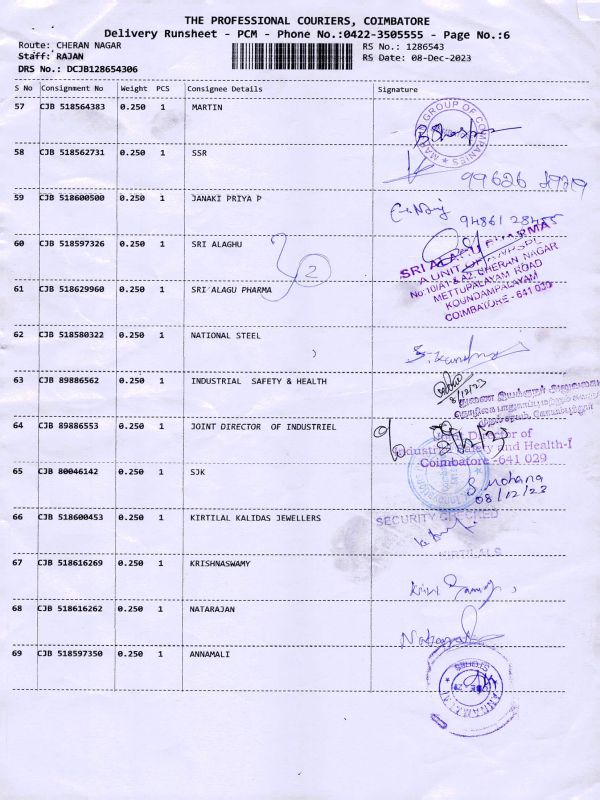 THE PROFESSIONAL COURIERS, COIMBATORE
Delivery Runsheet - PCM - Phone No.:0422-3505555 - Page No.:6
Route: CHERAN NAGAR RS No.: 1286543
Staff: RAJAN RS Date: 08-Dec-2023
DRS No.: DCJB128654306
S No Consignment No Weight PCS Consignee Details Signature
57 CJB 518564383 0.250 1 MARTIN
GROUP OF COMPANIES
58 CJB 518562731 0.250 1 SSR
99626
59 CJB 518600500 0.250 1 JANAKI PRIYA P
94861 28455
60 CJB 518597326 0.250 1 SRI ALAGHU
2
SRI ALAGU PHARMA
A UNIT OF
No:10/A1 & A2, CHERAN NAGAR
METTUPALAYAM ROAD
KOUNDAMPALAYAM
COIMBATORE - 641 030
61 CJB 518629960 0.250 1 SRI ALAGU PHARMA
62 CJB 518580322 0.250 1 NATIONAL STEEL
63 CJB 89886562 0.250 1 INDUSTRIAL SAFETY & HEALTH
8/12/23
துணை இயக்குநர் அலுவலகம்
64 CJB 89886553 0.250 1 JOINT DIRECTOR OF INDUSTRIEL
Director of
Industrial Safety and Health-I
Coimbatore -641 029
65 CJB 80046142 0.250 1 SJK
S. mohana
08/12/23
66 CJB 518600453 0.250 1 KIRTILAL KALIDAS JEWELLERS
SECURITY CHECKED
KIRTILALS
67 CJB 518616269 0.250 1 KRISHNASWAMY
68 CJB 518616262 0.250 1 NATARAJAN
69 CJB 518597350 0.250 1 ANNAMALI
ANNAMALAI STORES